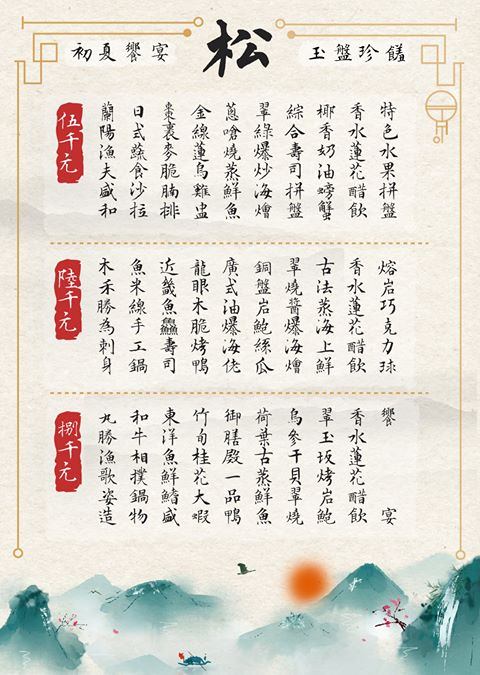 初夏饗宴
松
玉盤珍饈
伍千元
蘭陽漁夫盛和
日式蔬食沙拉
棗裹麥脆腩排
金線蓮烏雞盅
蔥嗆燒蒸鮮魚
翠綠爆炒海燴
綜合壽司拼盤
椰香奶油螃蟹
香水蓮花醋飲
特色水果拼盤
陸千元
木禾勝為刺身
魚米線手工鍋
近畿魚鱻壽司
龍眼木脆烤鴨
廣式油爆海佬
銅盤岩鮑絲瓜
翠燒醬爆海燴
古法蒸海上鮮
香水蓮花醋飲
熔岩巧克力球
捌千元
丸勝漁歌姿造
和牛相撲鍋物
東洋魚鮮鰭盛
竹旬桂花大蝦
御膳殿一品鴨
荷葉古蒸鮮魚
烏參干貝翠燒
翠玉坂烤岩鮑
香水蓮花醋飲
饗宴